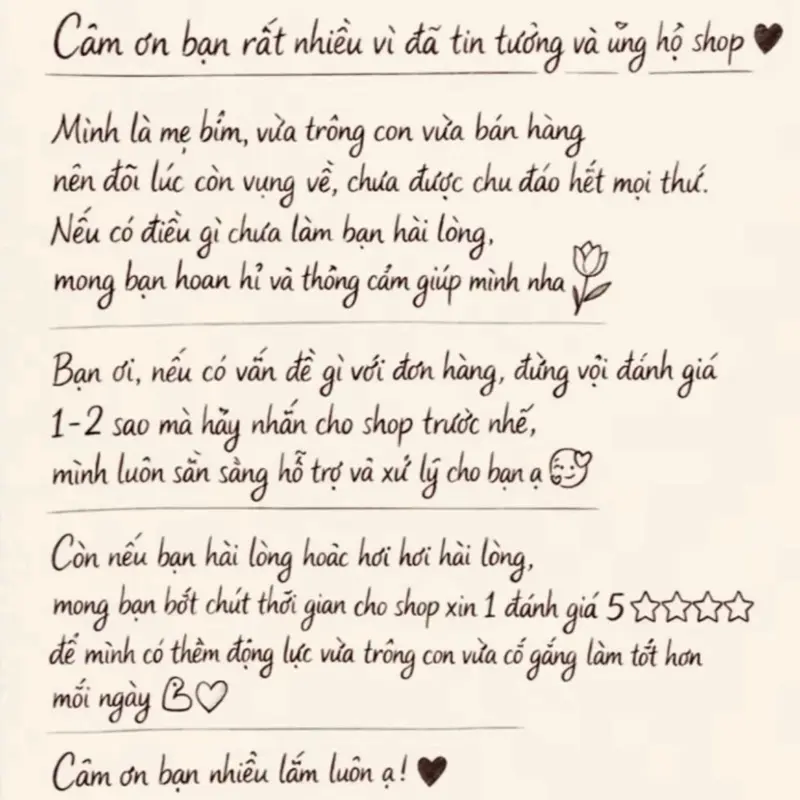 Cảm ơn bạn rất nhiều vì đã tin tưởng và ủng hộ shop
Mình là mẹ bỉm, vừa trông con vừa bán hàng
nên đôi lúc còn vụng về, chưa được chu đáo hết mọi thứ.
Nếu có điều gì chưa làm bạn hài lòng,
mong bạn hoan hỉ và thông cảm giúp mình nha
Bạn ơi, nếu có vấn đề gì với đơn hàng, đừng vội đánh giá
1-2 sao mà hãy nhắn cho shop trước nhé,
mình luôn sẵn sàng hỗ trợ và xử lý cho bạn ạ
Còn nếu bạn hài lòng hoặc hơi hơi hài lòng,
mong bạn bớt chút thời gian cho shop xin 1 đánh giá 5 ☆☆☆☆
để mình có thêm động lực vừa trông con vừa cố gắng làm tốt hơn
mỗi ngày
Cảm ơn bạn nhiều lắm luôn ạ!